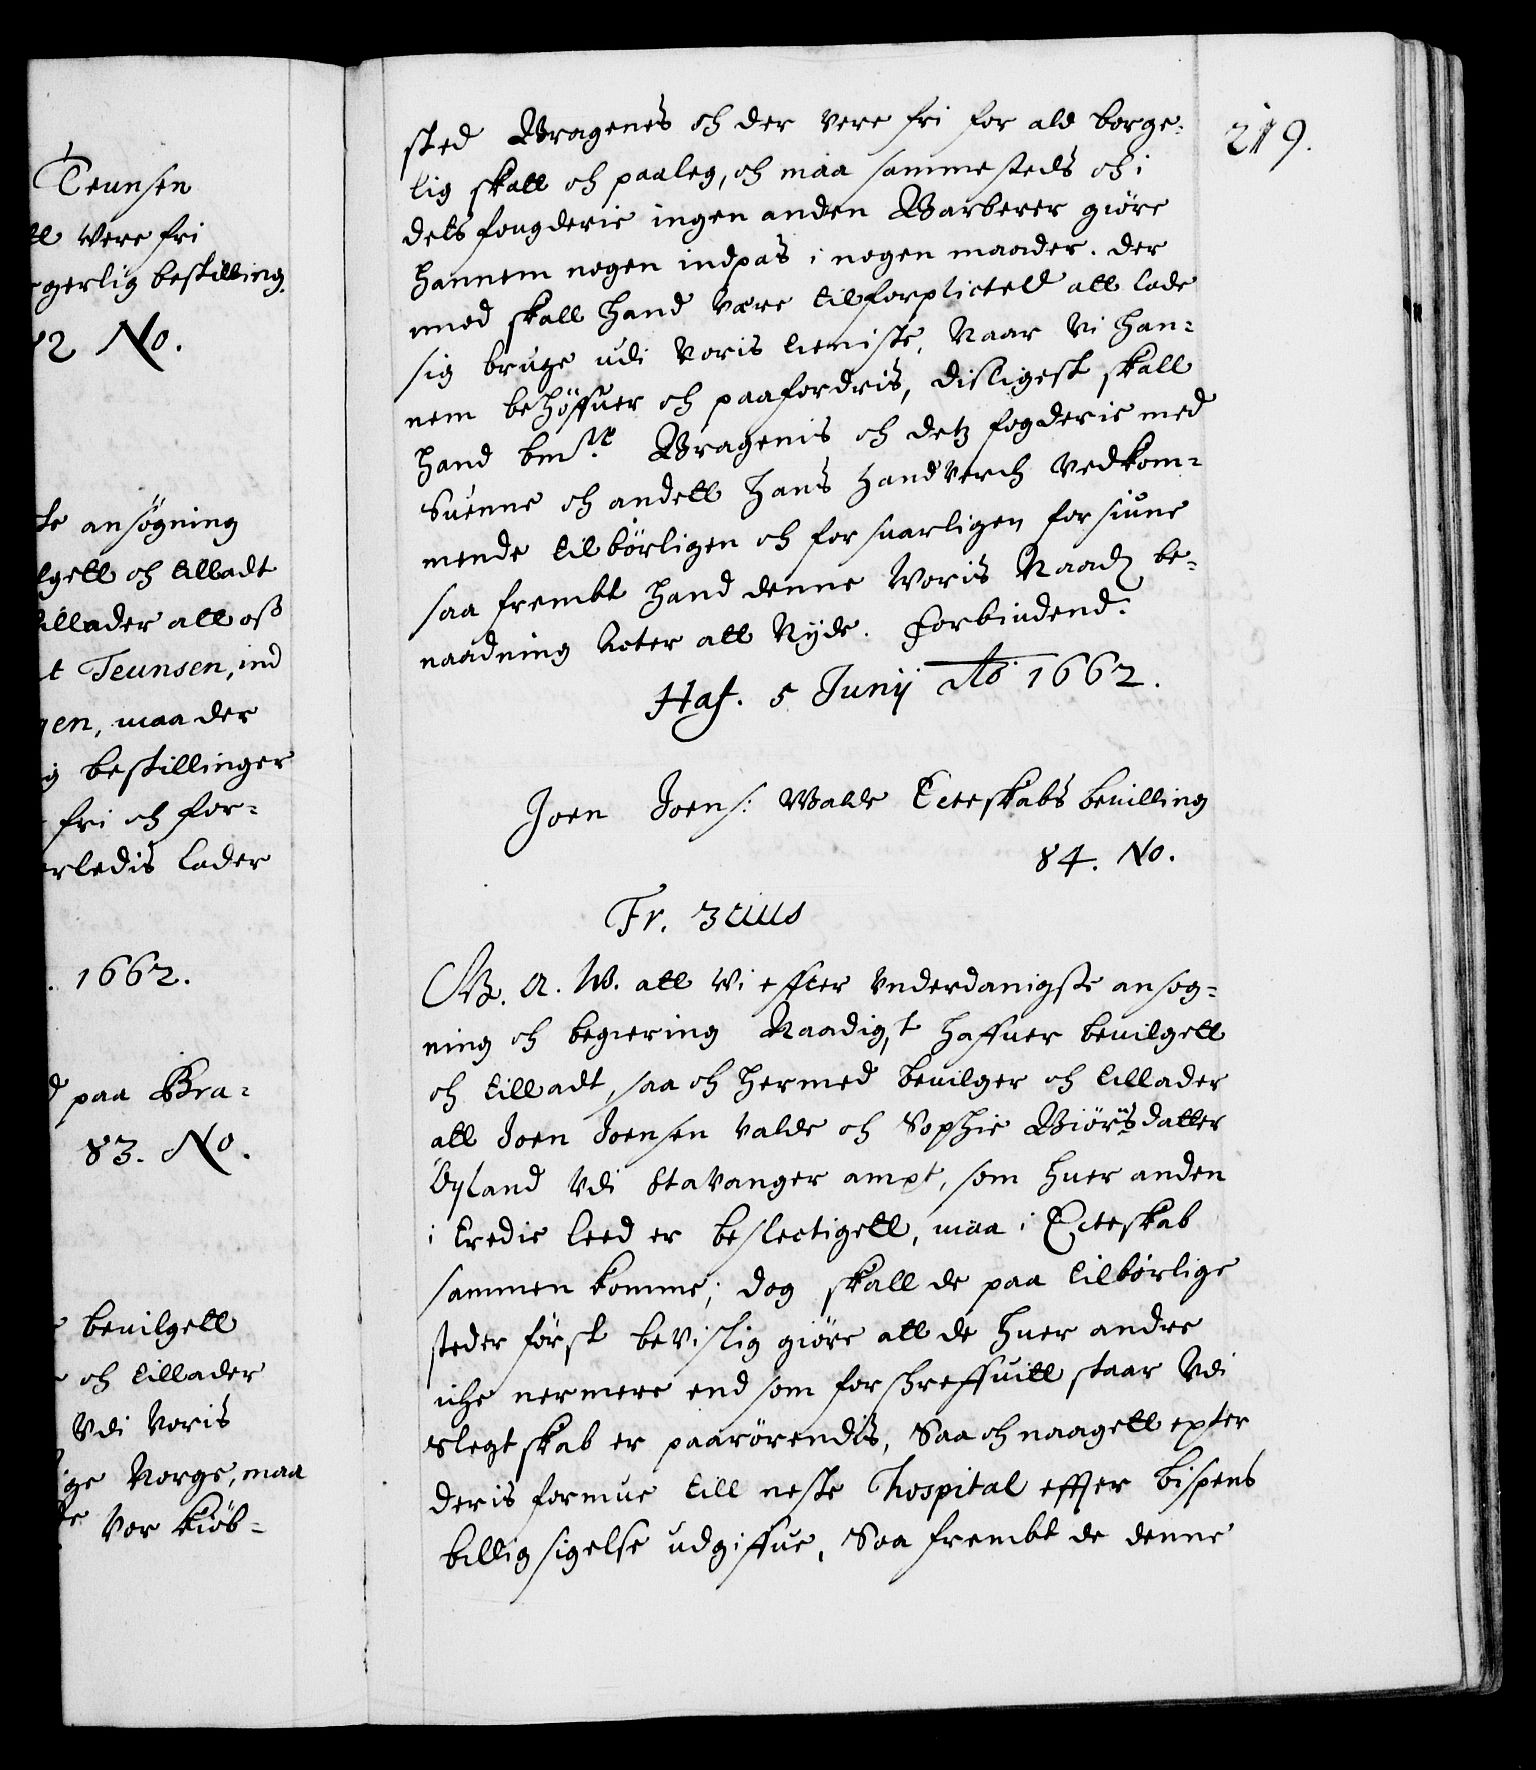 Teunsen
tt Vere fri
rgerlig bestilling.
82 No.
te ansøgning
lgett och tilladt
tillader att oss
t Teunsen, ind
gen, maa der
ig bestillinger
fri och for-
erledis lader
. 1662.
d paa Bra-
83. No.
e bevilgett
e och tillader
Vdi Voris
ige Norge, maa
te Vor kiøb-
219.
sted Bragenes och der Vere fri for ald borge-
lig skatt och paaleg, och maa sammesteds och i
dets fougderie ingen anden Barberer giøre
hannem nogen indpas i nogen maader. der
imod skall hand Være tilforplictett att lade
sig bruge udi Voris tieniste, Naar Vi han-
nem behøffuer och paafordris, disligest skall
hand bmte Bragenis och detz fogderie med
Suenne och andett hans handverch Vedkom-
mende tilbørligen och forsuarligen forsiune
saa frembt hand denne Woris Naads be-
naadning Acter att Nyde. Forbindend:
Haf. 5 Junij Ao 1662.
Joen Joens: Walde Ecteskabs bevilling
84. No.
Fr. 3tius
G. A. W. att Vi effter Vnderdanigste ansog-
ning och begiering Naadigst haffuer bevilgett
och tilladt, saa och hermed bevilger och tillader
att Joen Joensen Valde och Sophie Biørsdatter
Øyland Vdi Stavanger ampt, som huer anden
i tredie leed er beslectigett, maa i Ecteskab
sammen komme; dog skall de paa tilbørlige
steder først beVislig giøre att de huer andre
iche nermere end som forschreffuitt staar Vdi
Slegtskab er paarørendis, Saa och naagett epter
deris formue till neste Hospital effter bispens
billig sigelse udgiffue, Saa frembt de denne